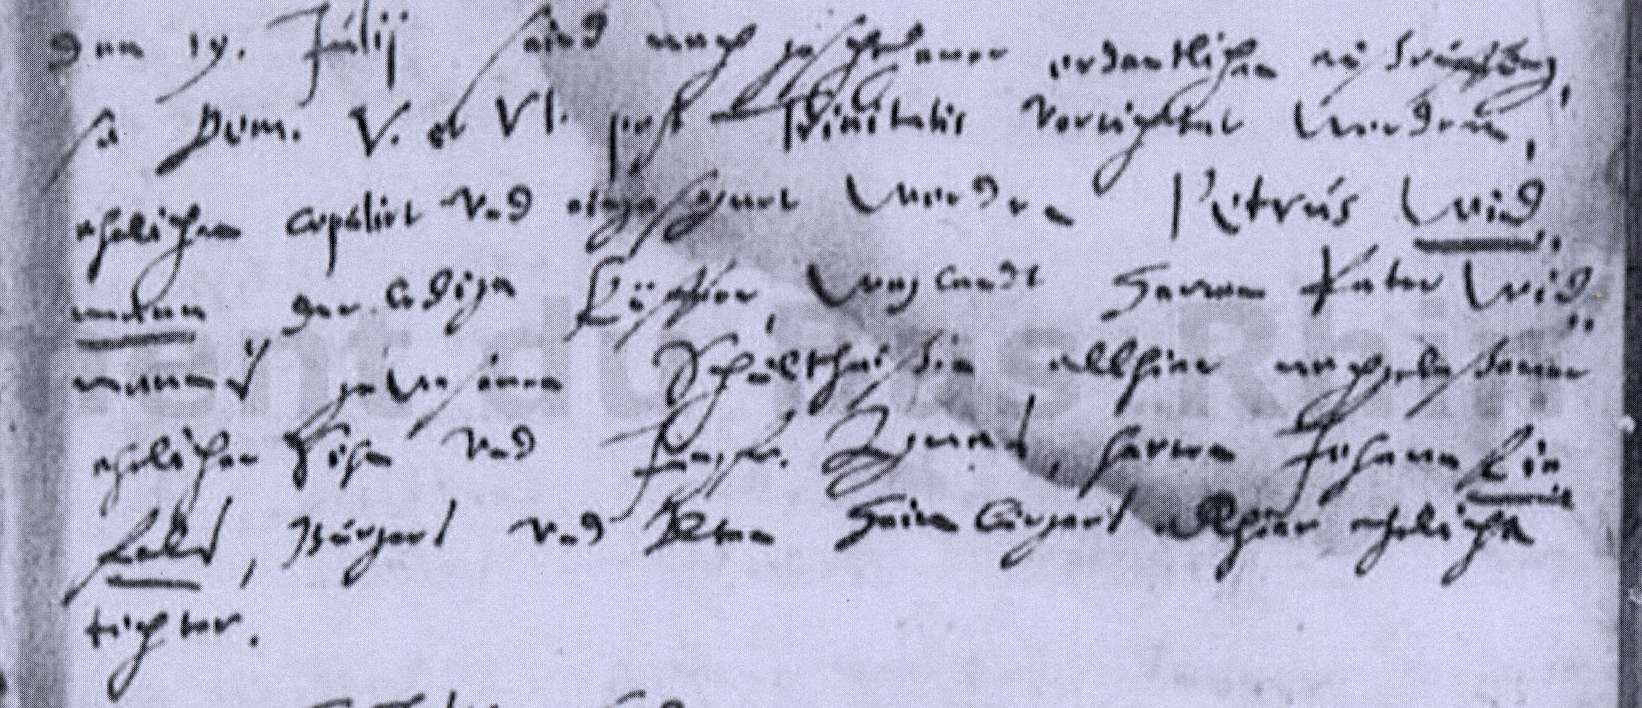 den 19. Julij sind nach geschehener ordentlichen außrüffung,
so Dom. V. et VI. post Trinitatis verrichtet worden,
ehelichen copulirt vnd eingesegnet worden Petrus Wid
mann der ledige Küffer, Weylandt Herren Peter Wid
manns gewesenen Schultheissen allhier nachgelassener
ehelicher Sohn vnd Jungfr. herren Johann Lin
Burgers vnd allhier eheliche
tochter.